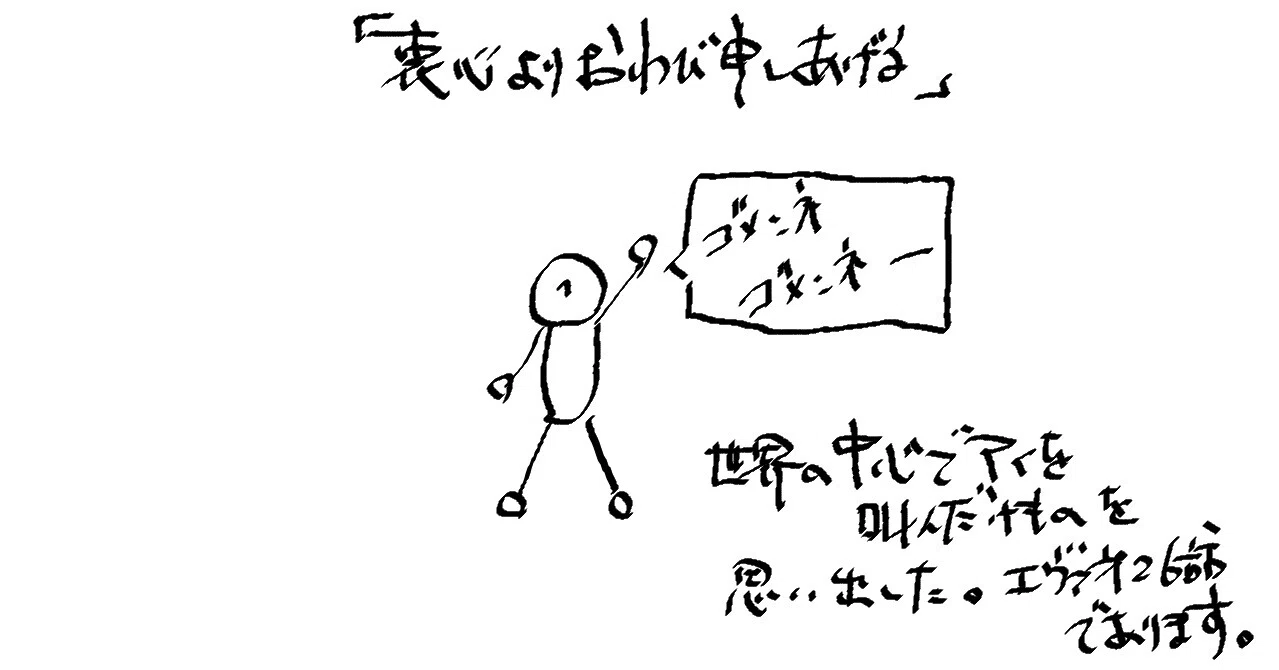 「衷心よりおわび申しあげる」
ゴメンネ
ゴメンネー
世界の中心でアイを
叫んだけものを
思い出した。エヴァオ26話
であります。